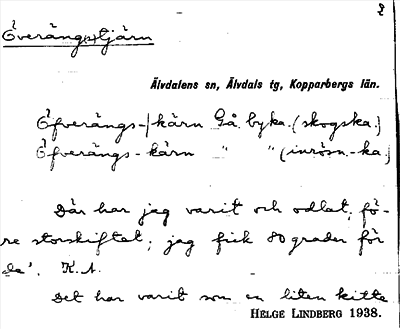 Överäng(s)tjärn
Älvdalens sn, Älvdals tg, Kopparbergs län.
Öfverängs-/kärn Gå. byka. (skogska.)
Öfverängs-kärn " " (inrösn.-ka.)
Där har jag varit och odlat, fö-
re storskiftet; jag fick 80 grader för
de'. K.A.
Det har varit som en liten kitte
HELGE LINDBERG 1938.